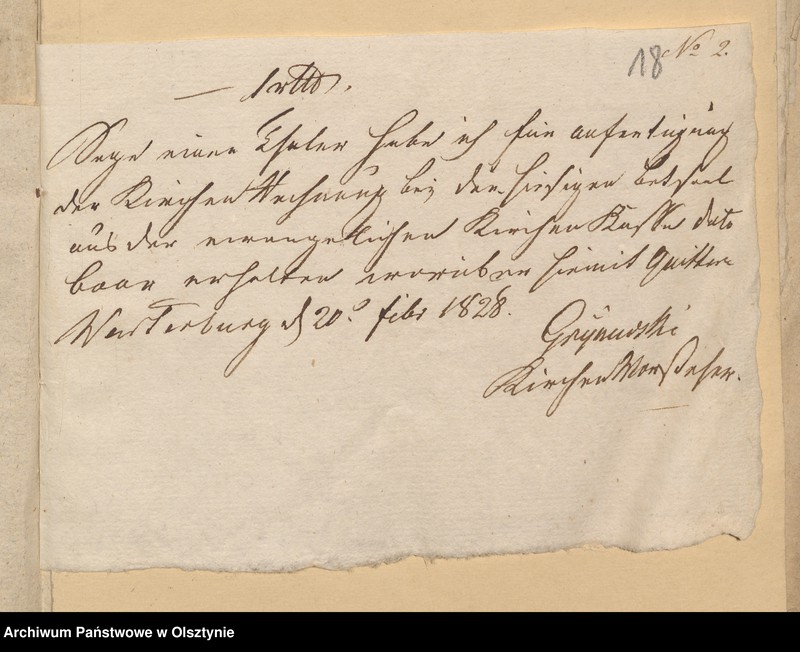 18 No 2.
— 1 rtlr.
Sage einen Thaler habe ich für anfertigung
der Kirchen Rechnung bei der hiesigen betsaal
aus der evangelichen Kirchen Kasse dato
baar erhalten worüber hiemit Quittire
Wartenburg d 20t Febr 1828.
Kirchen Vorsteher.
Archiwum Państwowe w Olsztynie